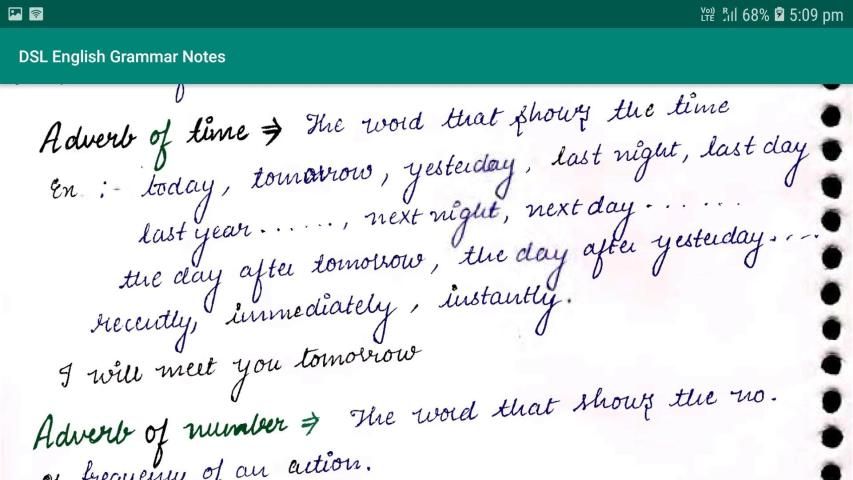 Voo LTE R 68% 5:09 pm
DSL English Grammar Notes
Adverb of time ⇒ The word that shows the time
En :- today, tomorrow, yesterday, last night, last day
last year ......, next night, next day .......
the day after tomorrow, the day after yesterday....
recently, immediately, instantly.
I will meet you tomorrow
Adverb of number ⇒ The word that shows the no.
or frequency of an action.